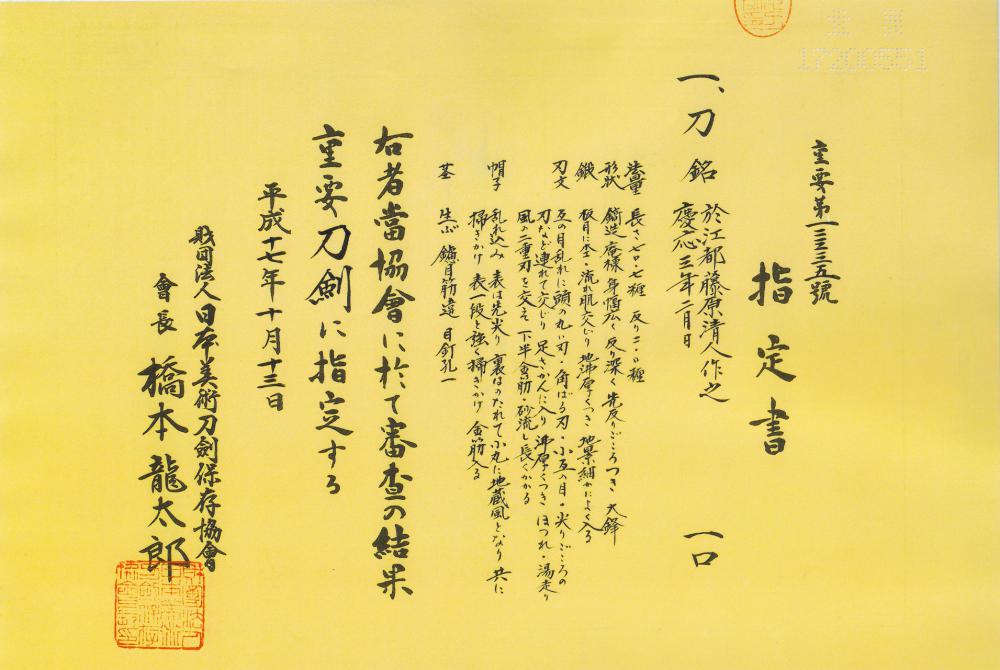 重要第一二三三五號
指定書
一、刀 銘 於江都藤原清人作之 一口
慶応三年二月日
法量 長さ七〇・七糎 反り二・八糎
形状 鎬造 庵棟 身幅広く 反り深く 先反りごころつき 大鋒
鍛 板目に杢・流れ肌交じり 地沸厚くつき 地景細かによく入る
刃文 互の目乱れに頭の丸い刃・角ばる刃・小互の目・尖りごころの
刃など連れて交じり 足さかんに入り 沸厚くつき ほつれ・湯走り
風の二重刃を交え 下半金筋・砂流し長くかかる
帽子 乱れ込み 表は先尖り 裏はのたれて小丸に地蔵風となり 共に
掃きかけ 表一段と強く掃きかけ 金筋入る
茎 生ぶ 鑢目筋違 目釘孔一
右者當協會に於て審査の結果
重要刀劍に指定する
平成十七年十月十三日
財団法人日本美術刀劍保存協會
會長 橋本龍太郎
17200551